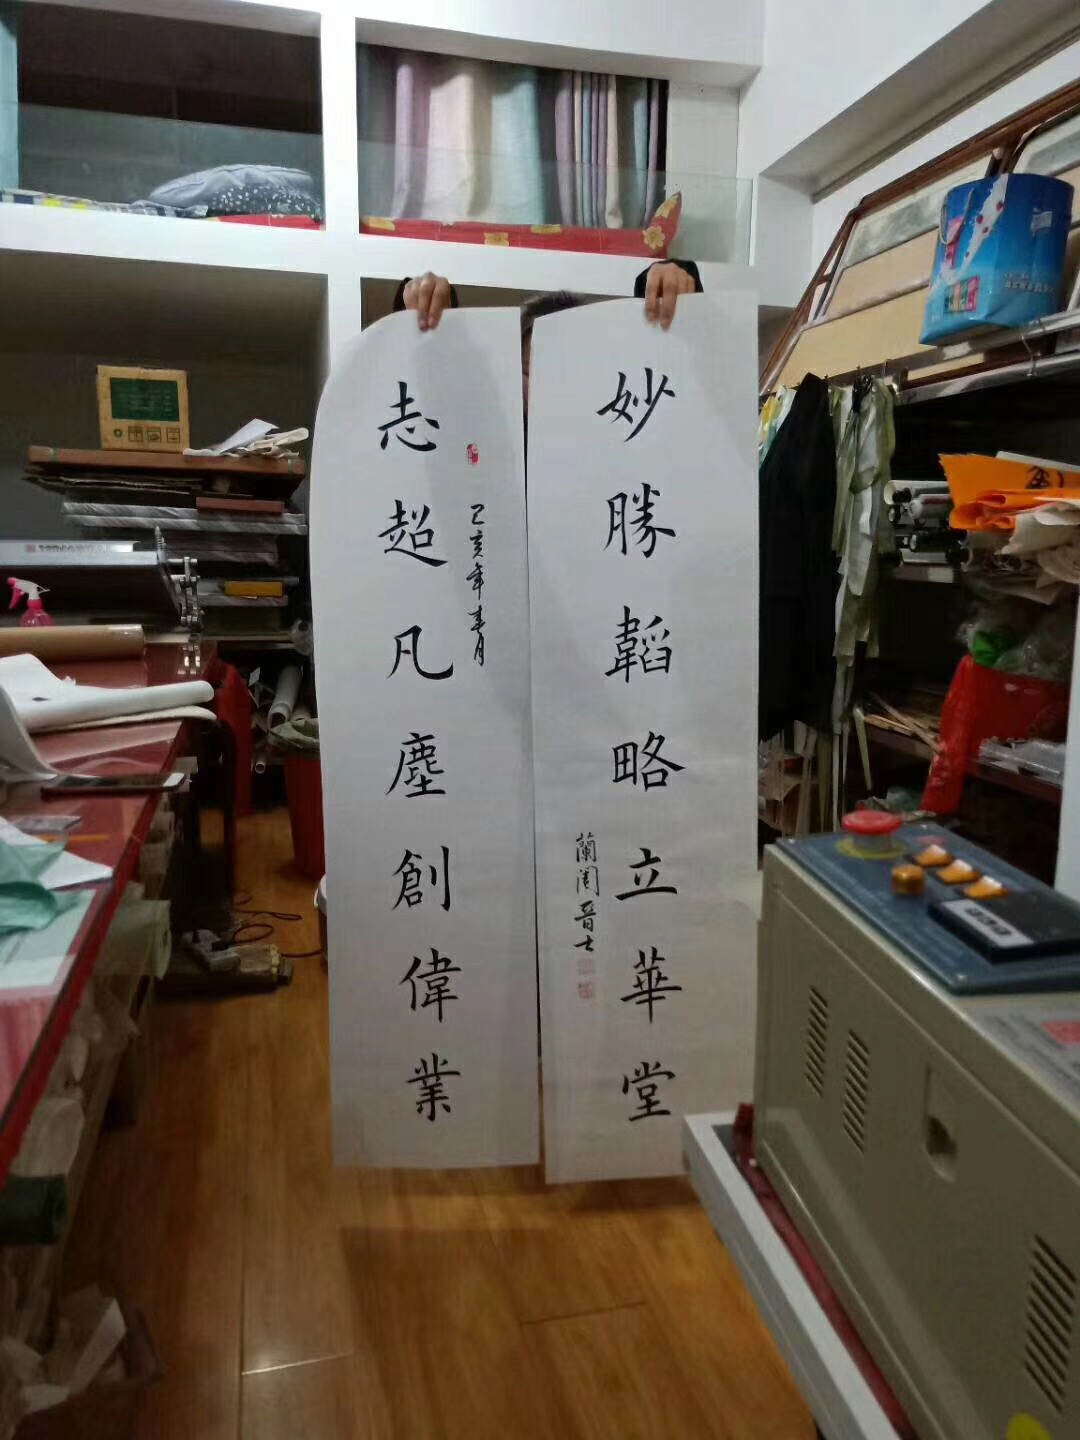 志超凡塵創偉業
己亥年春月
妙勝韜略立華堂
蘭閣晉士